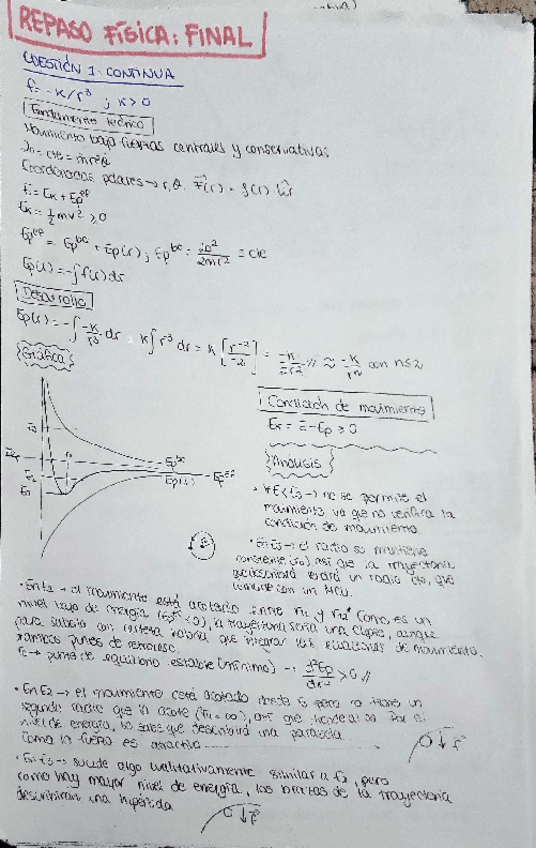 REPASO FÍSICA: FINAL
CUESTIÓN 1: CONTINUA
f = -K/r³ ; K>0
Fundamento teórico
Movimiento bajo fuerzas centrales y conservativas
Coordenadas polares → r, θ. F(r) = f(r)·ûr
E = Ek + Ep^ef
Ek = ½mv² ≥ 0
Ep(r) = -∫f(r)dr
Desarrollo
Ep(r) = -∫ -K/r³ dr = K∫r³ dr = K [r⁻²/-2] = -K/2r² // ≈ -K/rⁿ con n≤2
Gráfica
Condición de movimiento
Er = E-Ep ≥ 0
Ep^bc
Ep(r)
Ep^ef
Análisis
no se permite el
movimiento ya que no verifica la
condición de movimiento.
el radio se mantiene
constante (r0) así que la trayectoria
que describirá tendrá un radio cte, que
con un MCU.
· En E1 → el movimiento está acotado entre r1 y r2. Como es un
nivel bajo de energía (<0), la trayectoria sería una elipse, aunque
para saberlo con certeza habría que integrar las ecuaciones de movimiento.
puntos de retroceso.
→ punto de equilibrio estable (mínimo) → d²Ep/dr² > 0 //
· En E2 → el movimiento está acotado pero no tiene un
segundo radio que lo acote (= ∞), así que tiende a ∞. Por el
nivel de energía, se sabe que describirá una parábola
como la fuerza es atractiva
· En E3 → sucede algo cualitativamente similar a E2, pero
como hay mayor nivel de energía, los brazos de la trayectoria
describirán una hipérbola